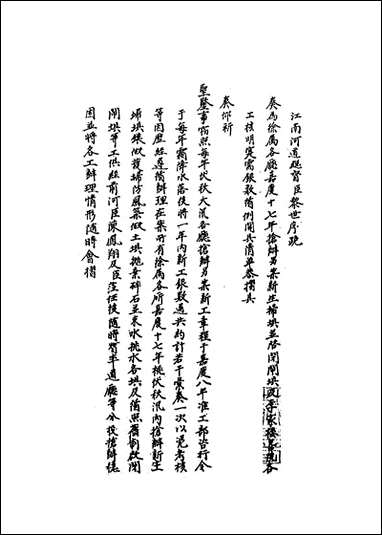 江南河道總督臣黎世序跪
奏為徐屬各廳嘉慶十七年搶辦另案新生掃埧並啓閉閘埧及李家樓善後各
工核明寔需銀數循例開具清单恭摺具
奏仰祈
聖鑒事竊照每年伏秋大汛各廳搶辦另案新工章程于嘉慶八年准工部咨行令
于每年霜降水落後將一年內新工銀數通共約計若干彙奏一次以憑考核
等因歷經遵循辦理在案所有徐屬各所嘉慶十七年桃伏秋汛內搶辦新生
掃埧鑲做護埽防風築做土埧抛築碎石並裹水挑水各埧及循照舊創啟閉
閘埧等工俱經前河臣陳鳳翔及臣蒞任後隨時督率道廳等分投搶辦穩
固並將各工辦理情形隨時會摺